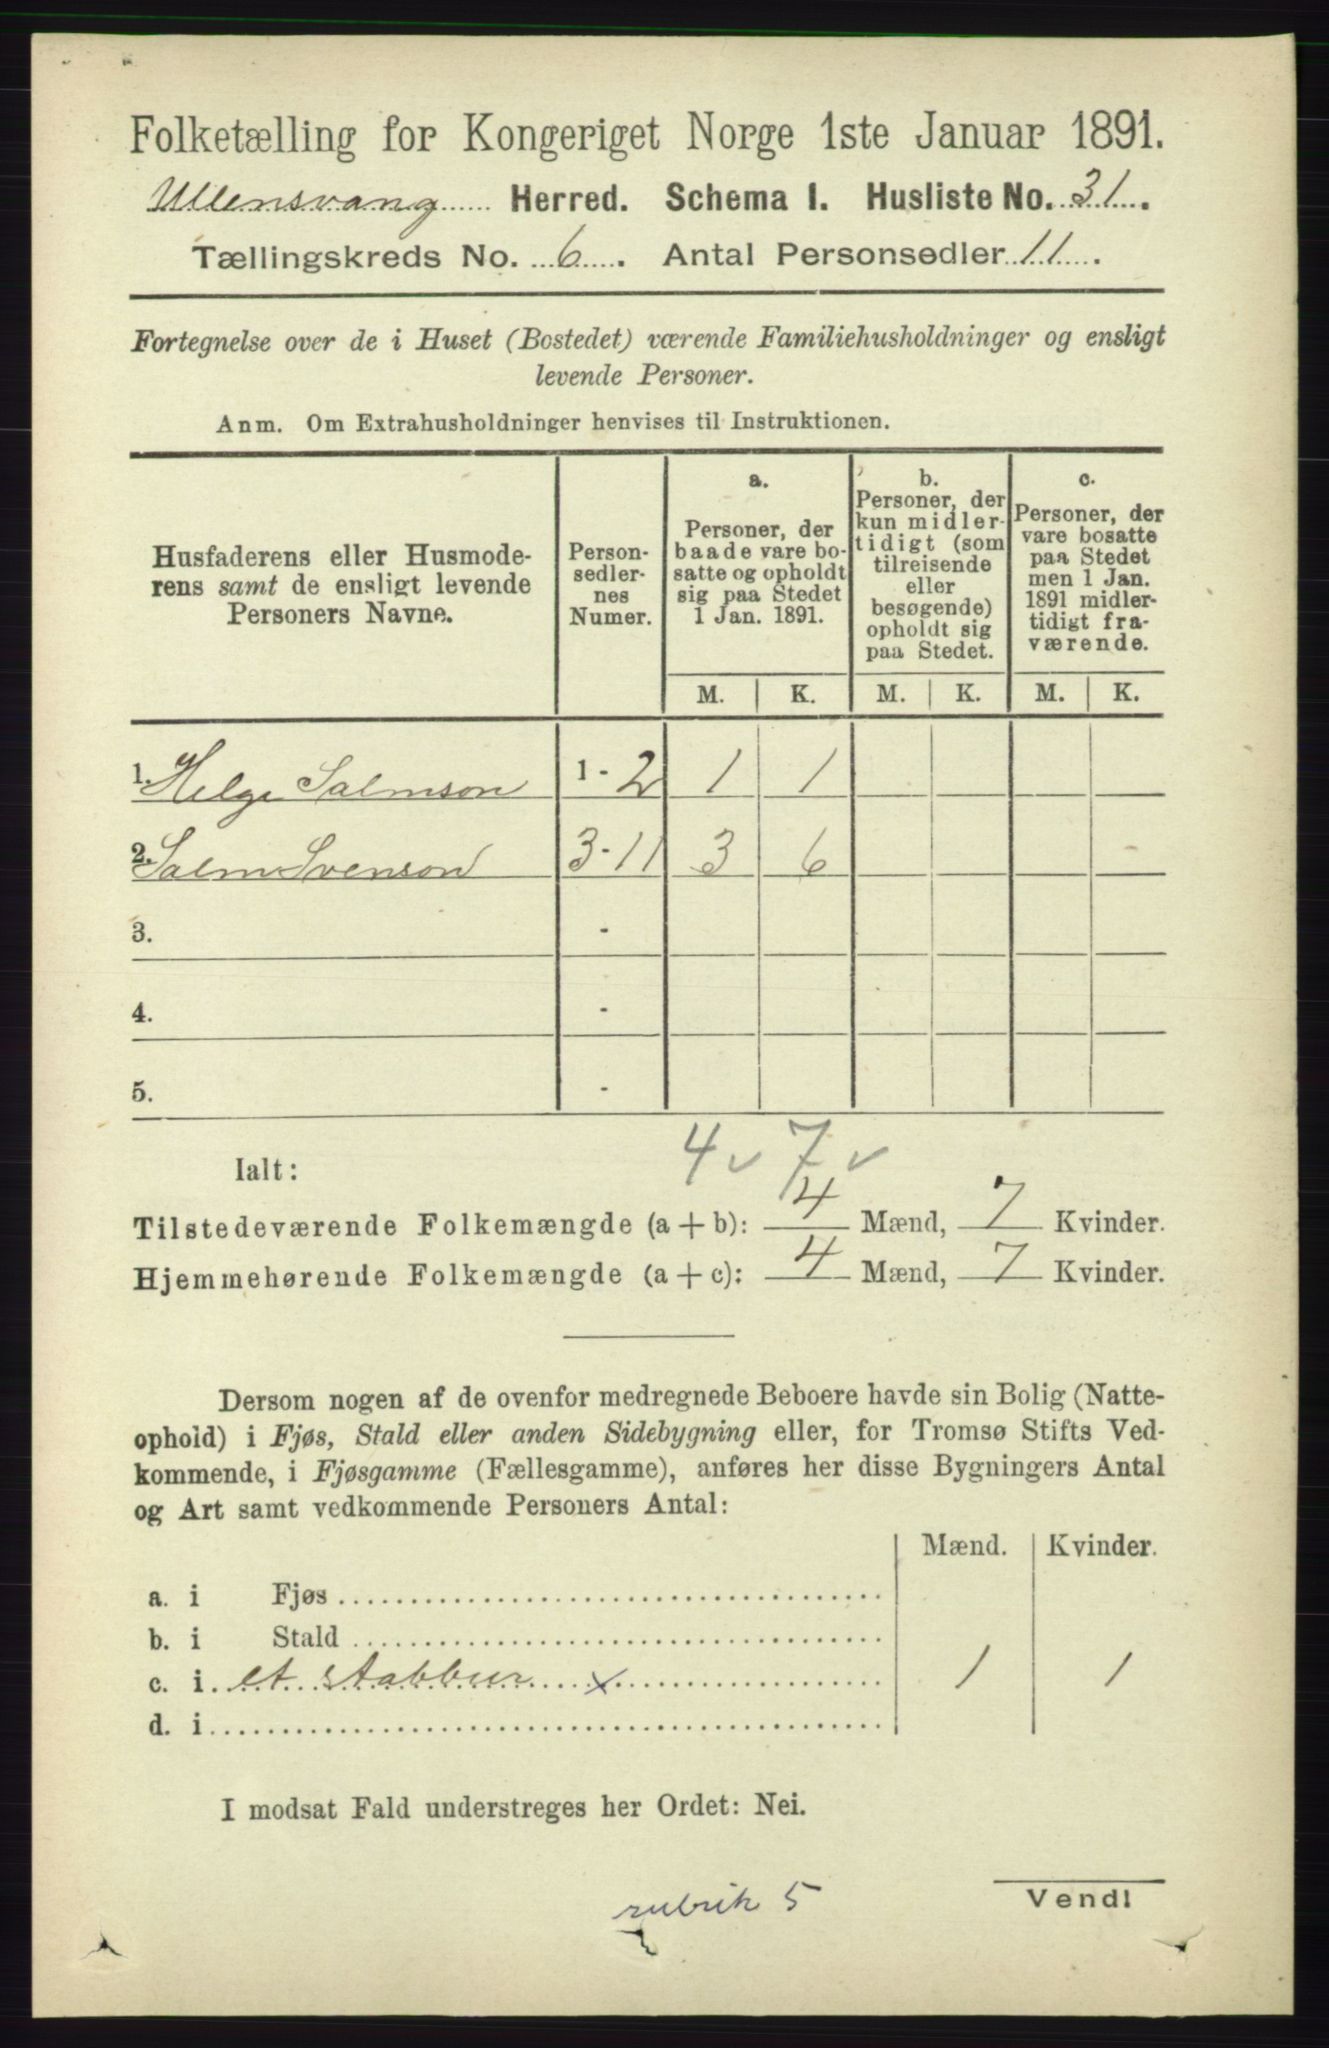 Folketælling for Kongeriget Norge 1ste Januar 1891.
Ullensvang Herred. Schema I. Husliste No. 31.
Tællingskreds No. 6. Antal Personsedler 11.
Fortegnelse over de i Huset (Bostedet) værende Familiehusholdninger og ensligt
levende Personer.
Anm. Om Extrahusholdninger henvises til Instruktionen.
Husfaderens eller Husmode-
rens samt de ensligt levende
Personers Navne.
Person-
sedler-
nes
Numer.
a.
Personer, der
baade vare bo-
satte og opholdt
sig paa Stedet
1 Jan. 1891.
b.
Personer, der
kun midler-
tidigt (som
tilreisende
eller
besøgende)
opholdt sig
paa Stedet.
c.
Personer, der
vare bosatte
paa Stedet
men 1 Jan.
1891 midler-
tidigt fra-
værende.
M. K. M. K. M. K.
1. Helge Salmson 1 - 2 1 1
2. Salm Svenson 3 - 11 3 6
3. -
4. -
5. -
Ialt: 4 7
Tilstedeværende Folkemængde (a + b): 4 Mænd, 7 Kvinder.
Hjemmehørende Folkemængde (a + c): 4 Mænd, 7 Kvinder.
Dersom nogen af de ovenfor medregnede Beboere havde sin Bolig (Natte-
ophold) i Fjøs, Stald eller anden Sidebygning eller, for Tromsø Stifts Ved-
kommende, i Fjøsgamme (Fællesgamme), anføres her disse Bygningers Antal
og Art samt vedkommende Personers Antal:
Mænd. Kvinder.
a. i Fjøs
b. i Stald
c. i et stabbur x 1 1
d. i
I modsat Fald understreges her Ordet: Nei.
rubrik 5
Vend!